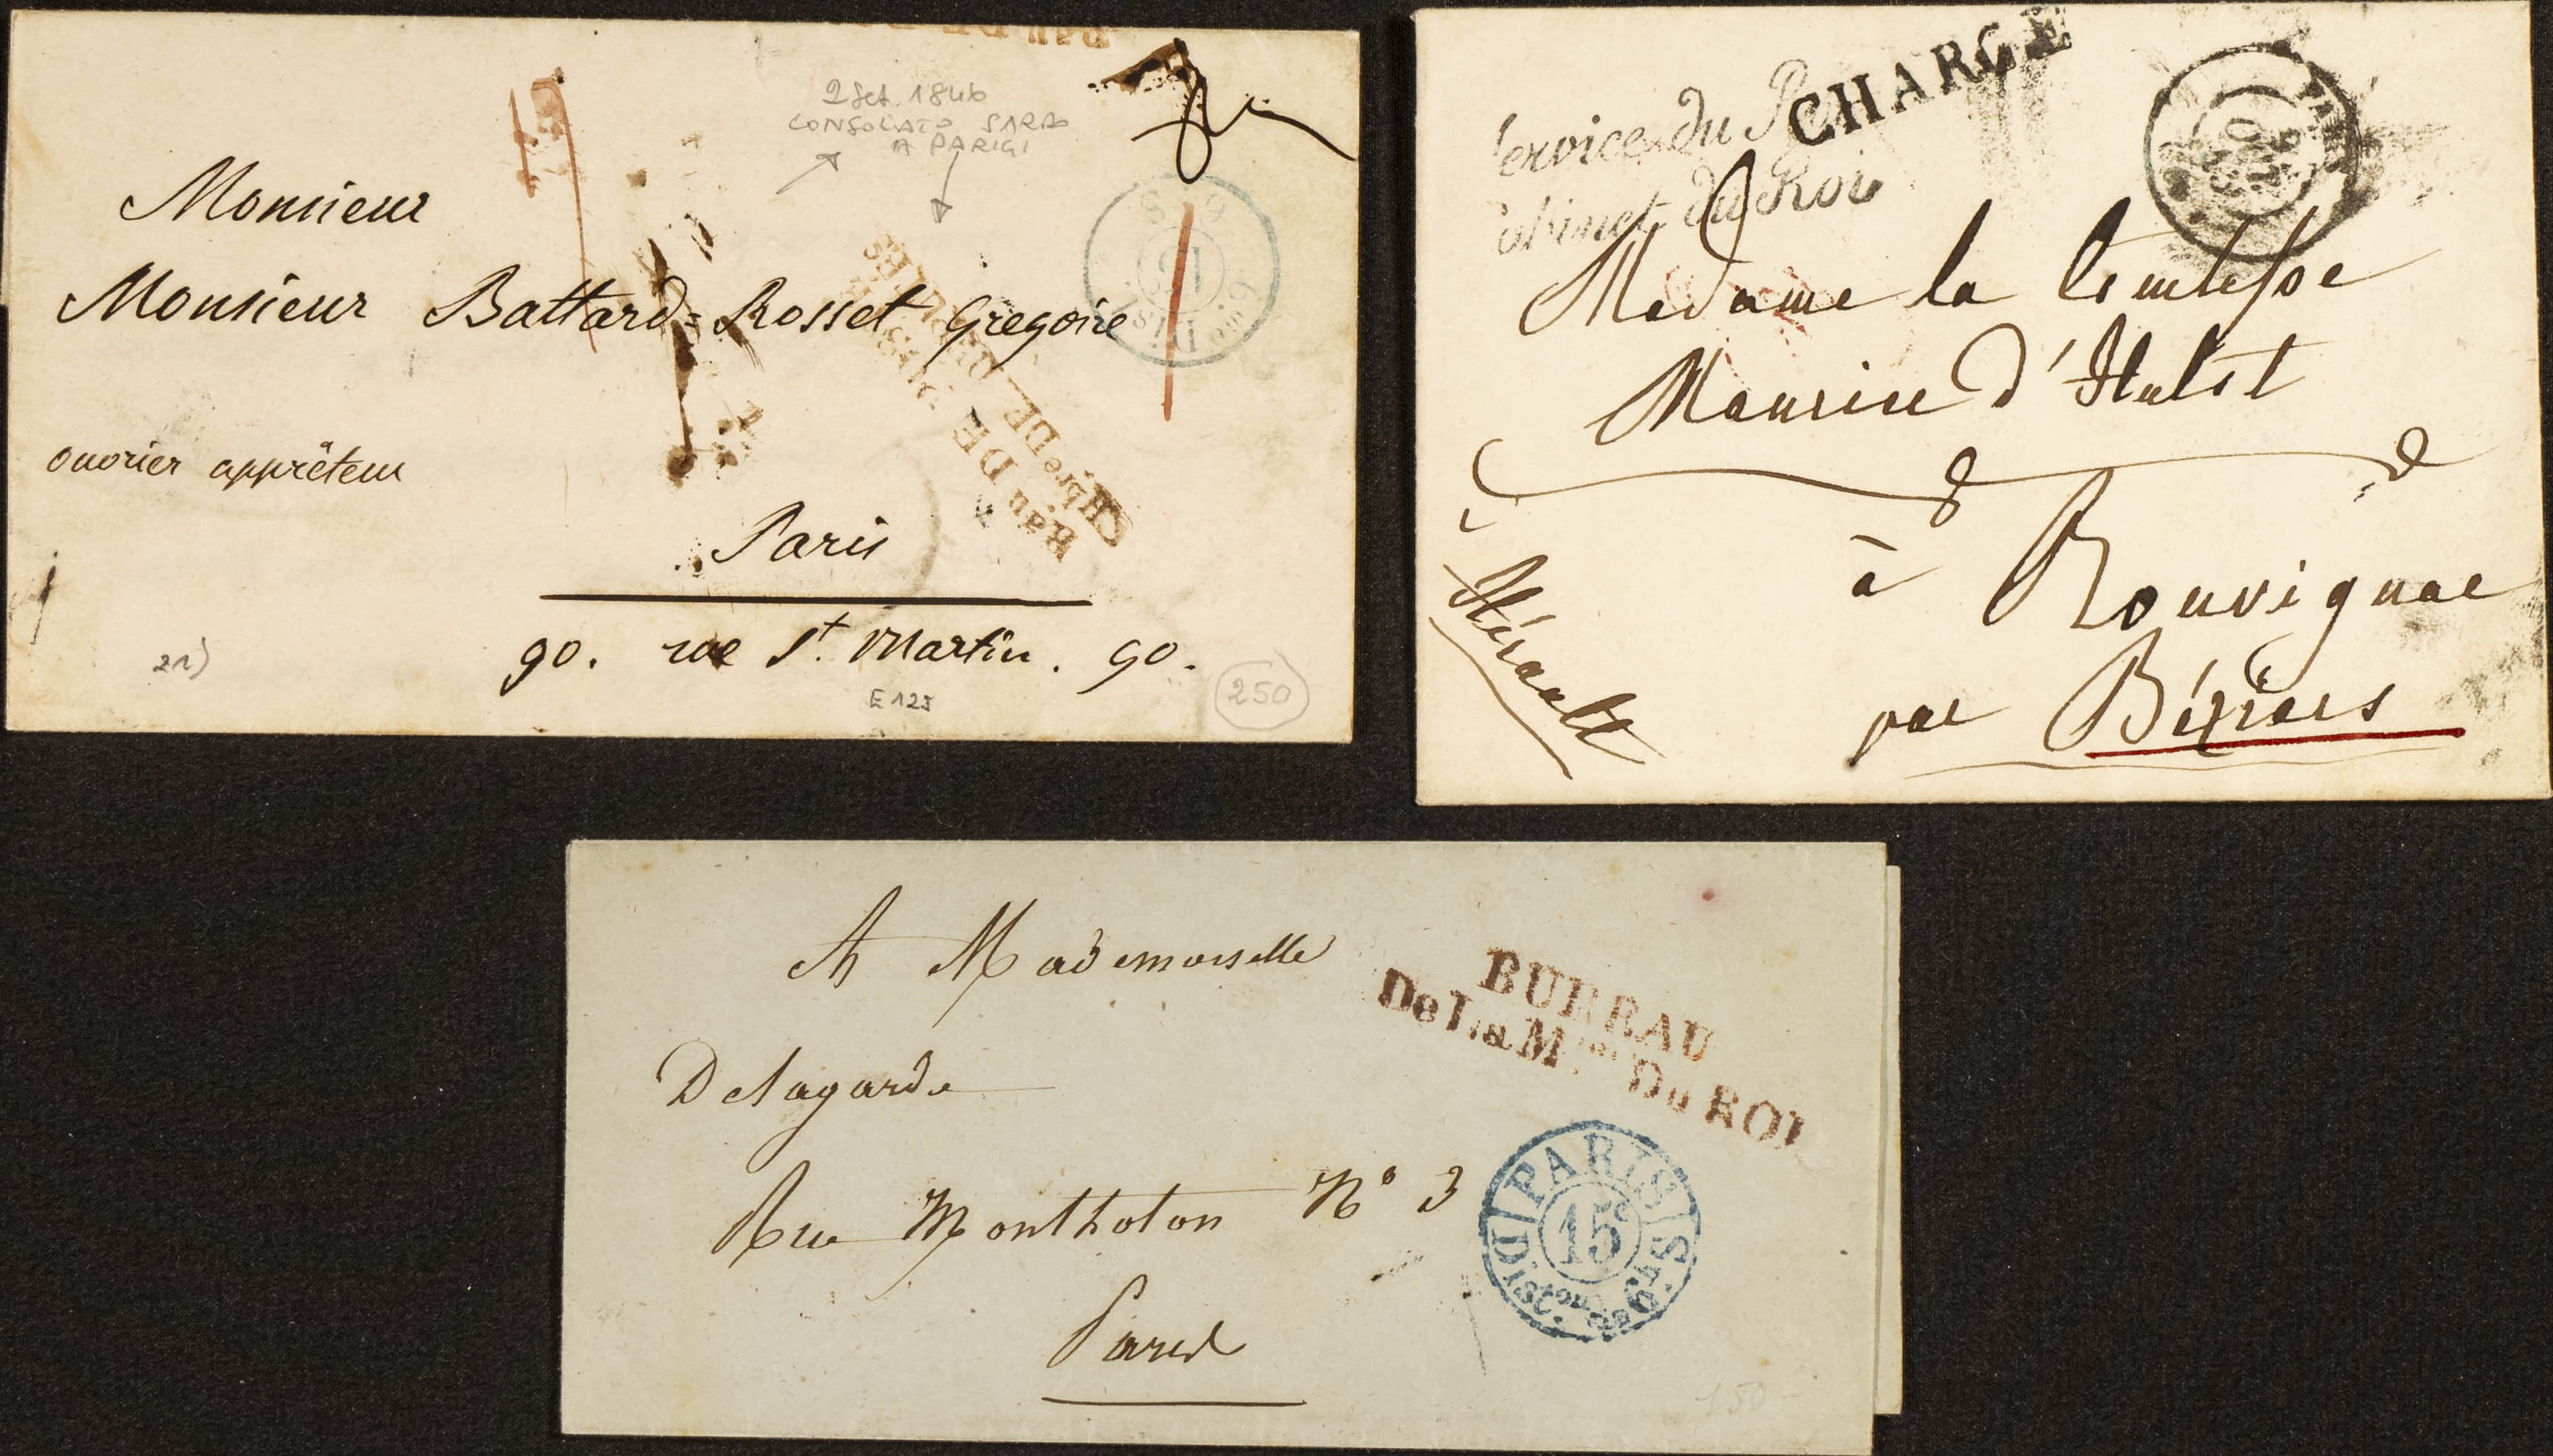 2 Set. 1846
CONSOLATO SARDO
A PARIGI
Monsieur
Monsieur Battard=Rosset Gregoire
ouvrier apprêteur
Paris
90. rue St. Martin. 90.
21)
E 125
250
Bau DE
CHbre DE DÉPUTÉS
Service du
CHARGÉ
Cabinet du Roi
PARIS
60
Madame la Comtesse
Maurice d'Hulst
à Rouvignac
par Béziers
Hérault
A Mademoiselle
BUREAU
De La Mson Du ROI
Delagarde
Rue Montholon N° 3
PARIS
15c
Distron
Paris
150-